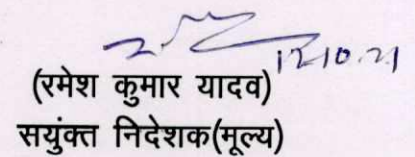 12.10.21
(रमेश कुमार यादव)
सयुंक्त निदेशक(मूल्य)